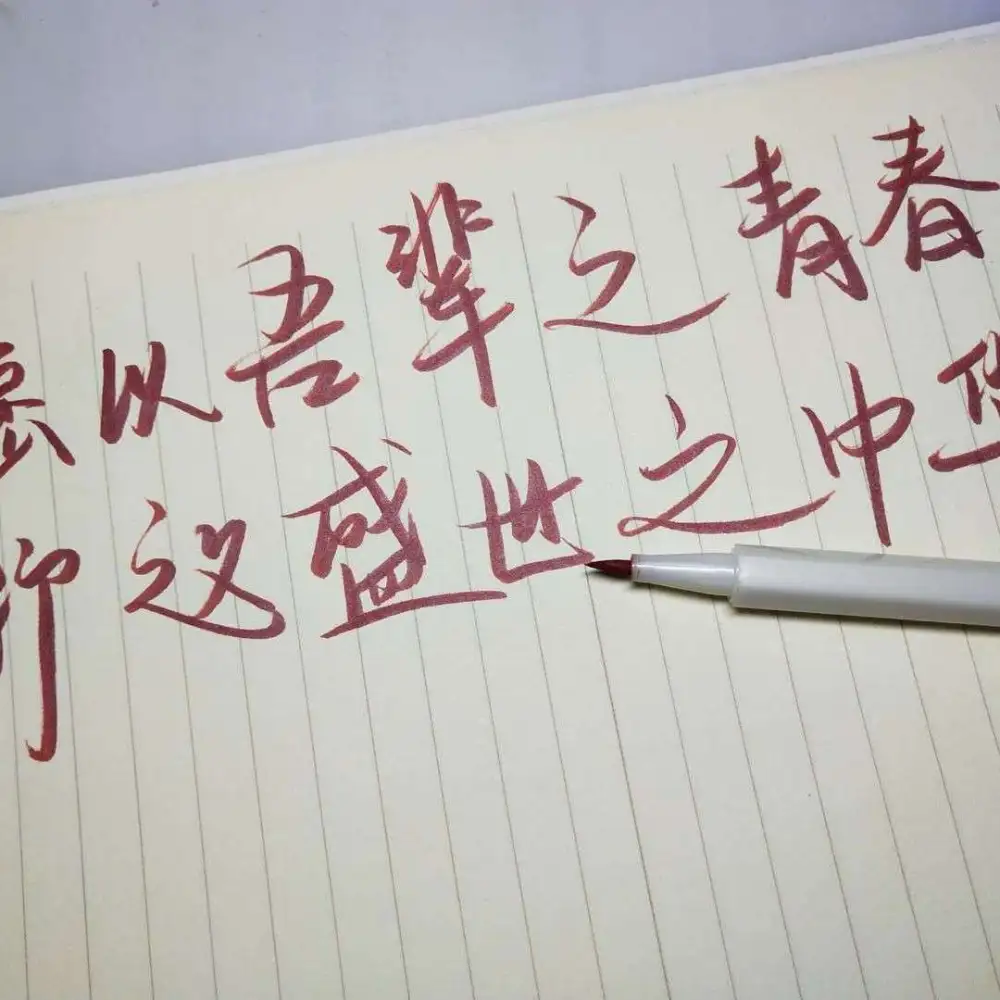 愿以吾辈之青春
护这盛世之中华